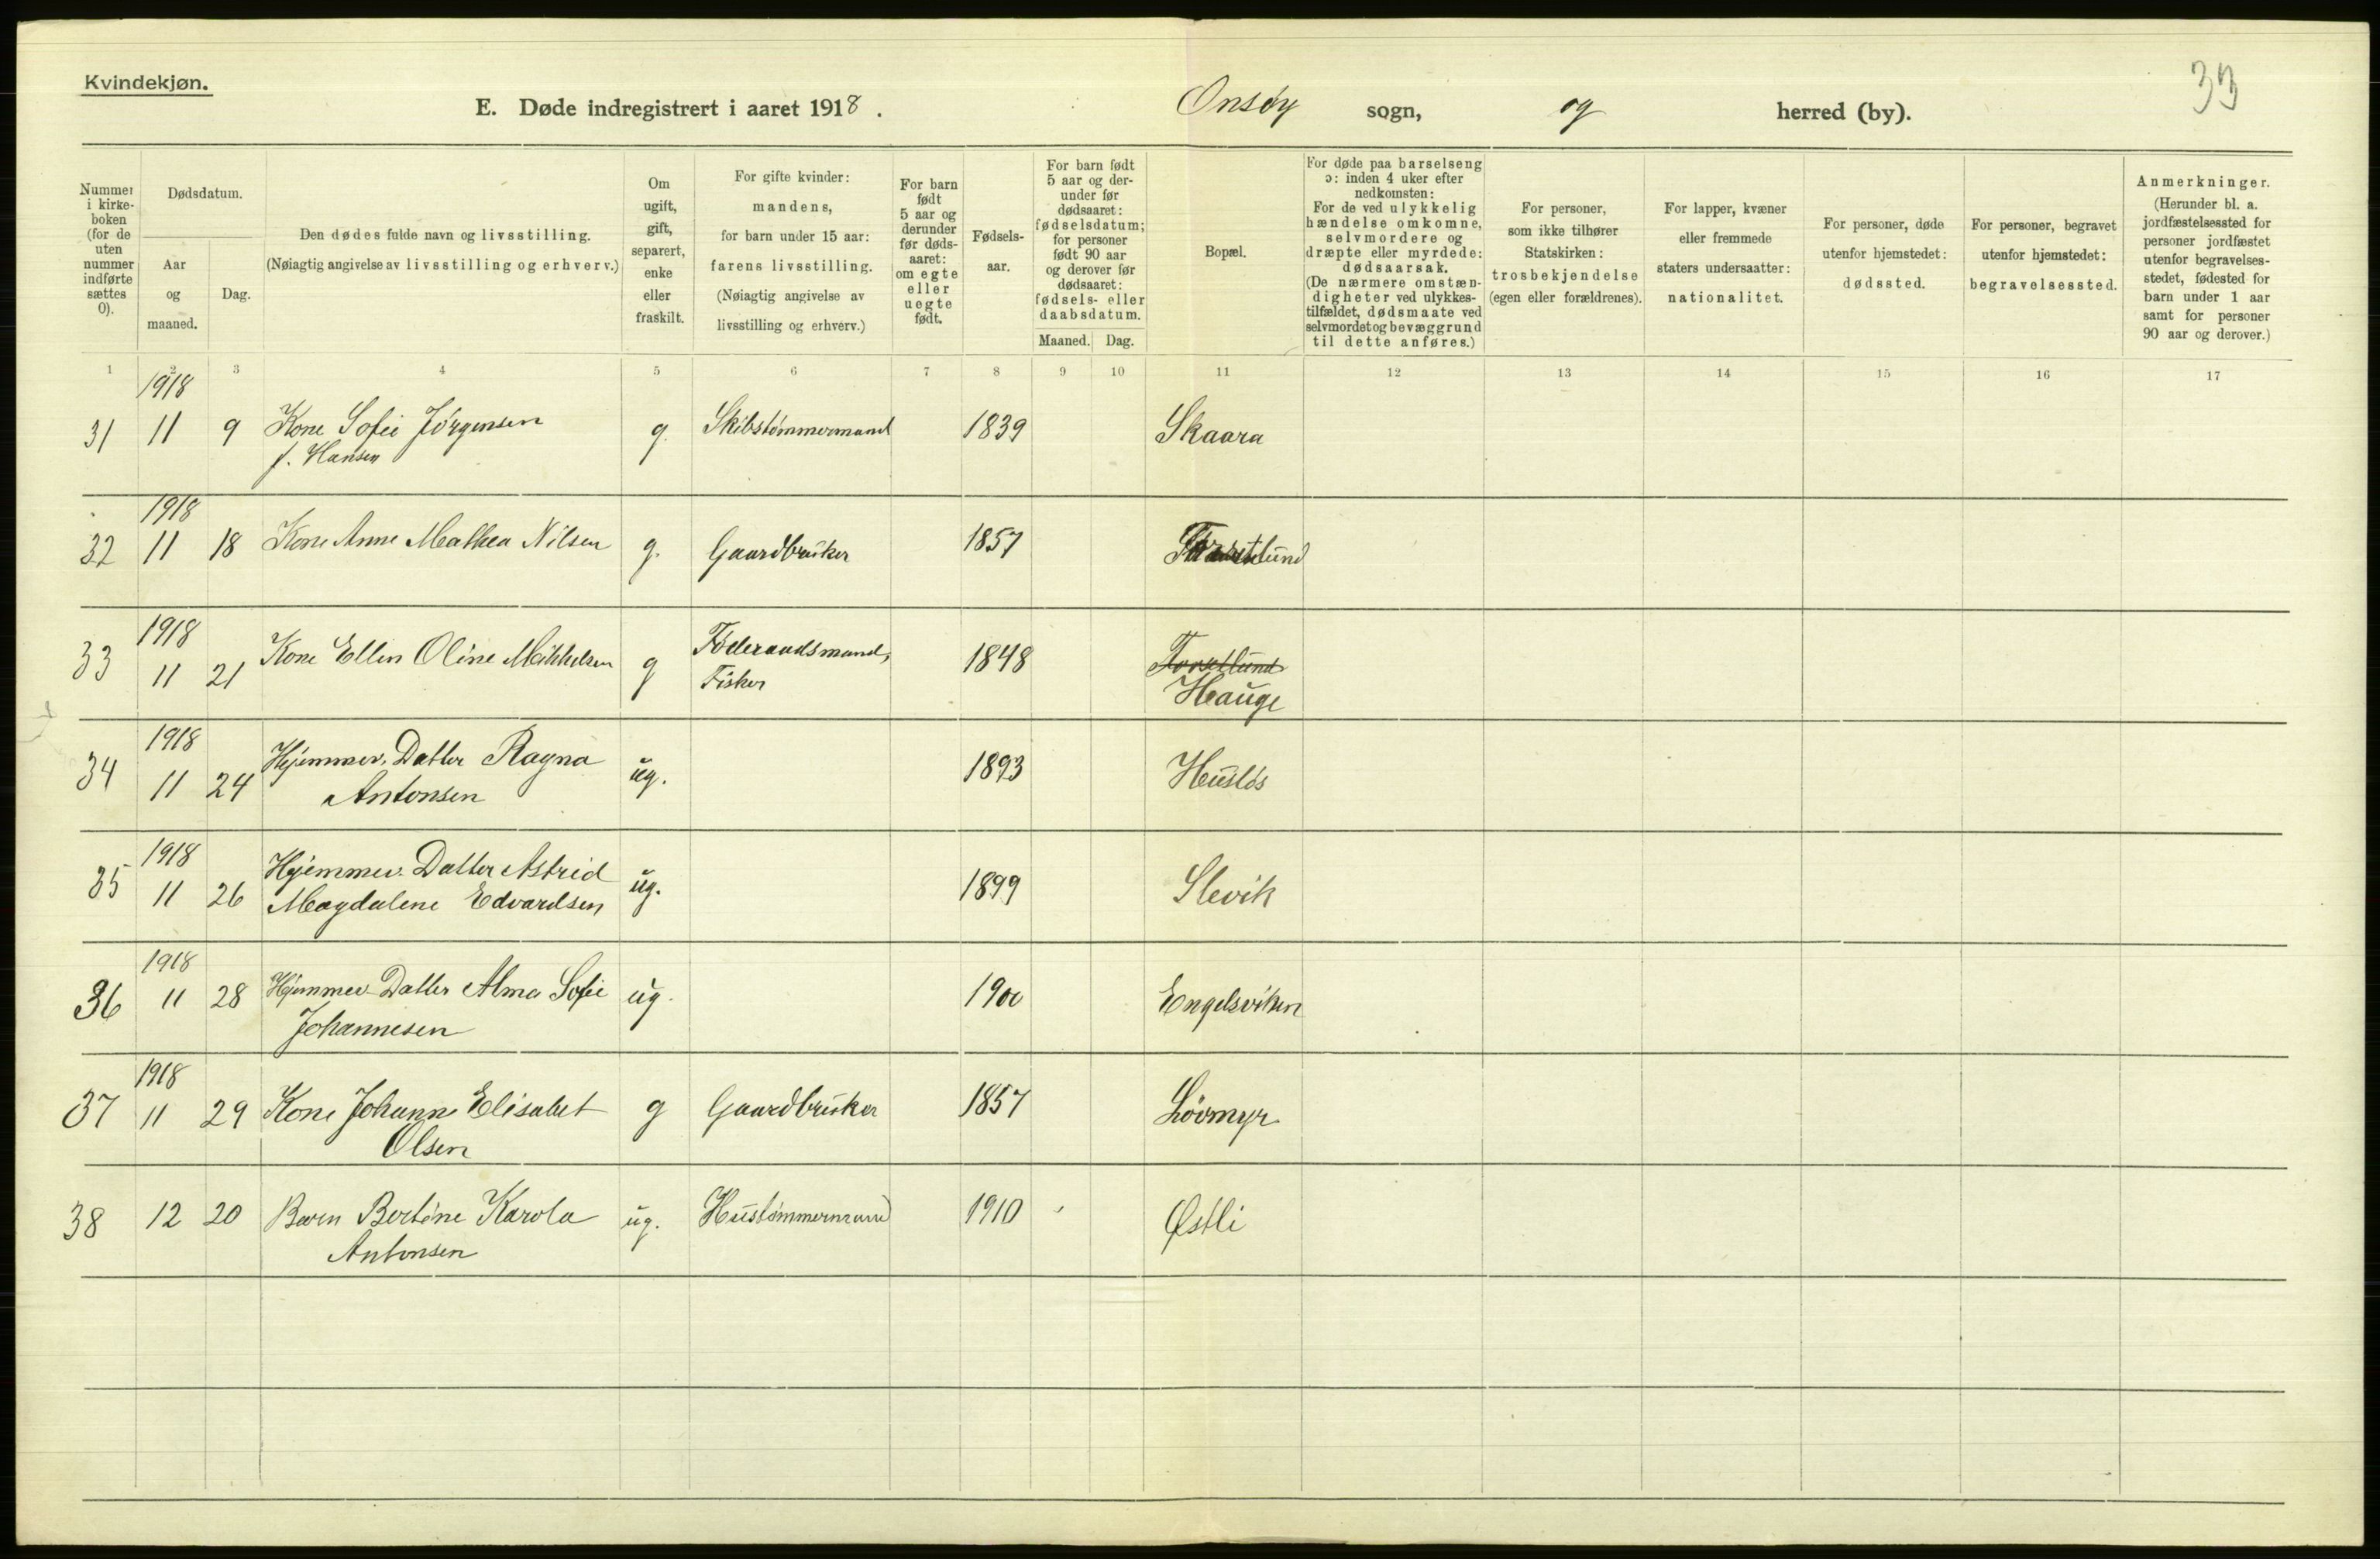 Kvindekjøn.
E. Døde indregistrert i aaret 1918. Onsøy sogn, og herred (by). 33
Nummer i kirke-boken (for de uten nummer indførte sættes 0).
Dødsdatum.
Aar og maaned.
Dag.
Den dødes fulde navn og livsstilling.
(Nøiagtig angivelse av livsstilling og erhverv.)
Om ugift, gift, separert, enke eller fraskilt.
For gifte kvinder: mandens, for barn under 15 aar: farens livsstilling. (Nøiagtig angivelse av livsstilling og erhverv.)
For barn født 5 aar og derunder før døds-aaret: om egte eller uegte født.
Fødsels-aar.
For barn født 5 aar og der-under før dødsaaret: fødselsdatum; for personer født 90 aar og derover før dødsaaret: fødsels- eller daabsdatum.
Maaned. Dag.
Bopæl.
For døde paa barselseng ɔ: inden 4 uker efter nedkomsten: For de ved ulykkelig hændelse omkomne, selvmordere og dræpte eller myrdede: dødsaarsak. (De nærmere omstæn-digheter ved ulykkes-tilfældet, dødsmaate ved selvmordet og bevæggrund til dette anføres.)
For personer, som ikke tilhører Statskirken: trosbekjendelse (egen eller forældrenes).
For lapper, kvæner eller fremmede staters undersaatter: nationalitet.
For personer, døde utenfor hjemstedet: dødssted.
For personer, begravet utenfor hjemstedet: begravelsessted.
Anmerkninger. (Herunder bl. a. jordfæstelsessted for personer jordfæstet utenfor begravelses-stedet, fødested for barn under 1 aar samt for personer 90 aar og derover.)
1 2 3 4 5 6 7 8 9 10 11 12 13 14 15 16 17
1918
31 11 9 Kone Sofie Jörgensen g. Skibstömmermand 1839 Skaara
f. Hansen
1918
32 11 18 Kone Anne Mathea Nilsen g. Gaardbruker 1857
1918
33 11 21 Kone Ellen Oline Mikkelsen g Föderaadsmand, 1848 Torsetlund
Fisker Hauge
1918
34 11 24 Hjemmev. Datter Ragna ug. 1893 Huslös
Antonsen
1918
35 11 26 Hjemmev. Datter Astrid ug. 1899 Slevik
Magdalene Edvardsen
1918
36 11 28 Hjemmev. Datter Alma Sofie ug. 1900 Engelsviken
Johannesen
1918
37 11 29 Kone Johanne Elisabet g Gaardbruker 1857 Lövmyr
Olsen
38 12 20 Barn Bertine Karola ug. Hustömmermand 1910 Østli
Antonsen